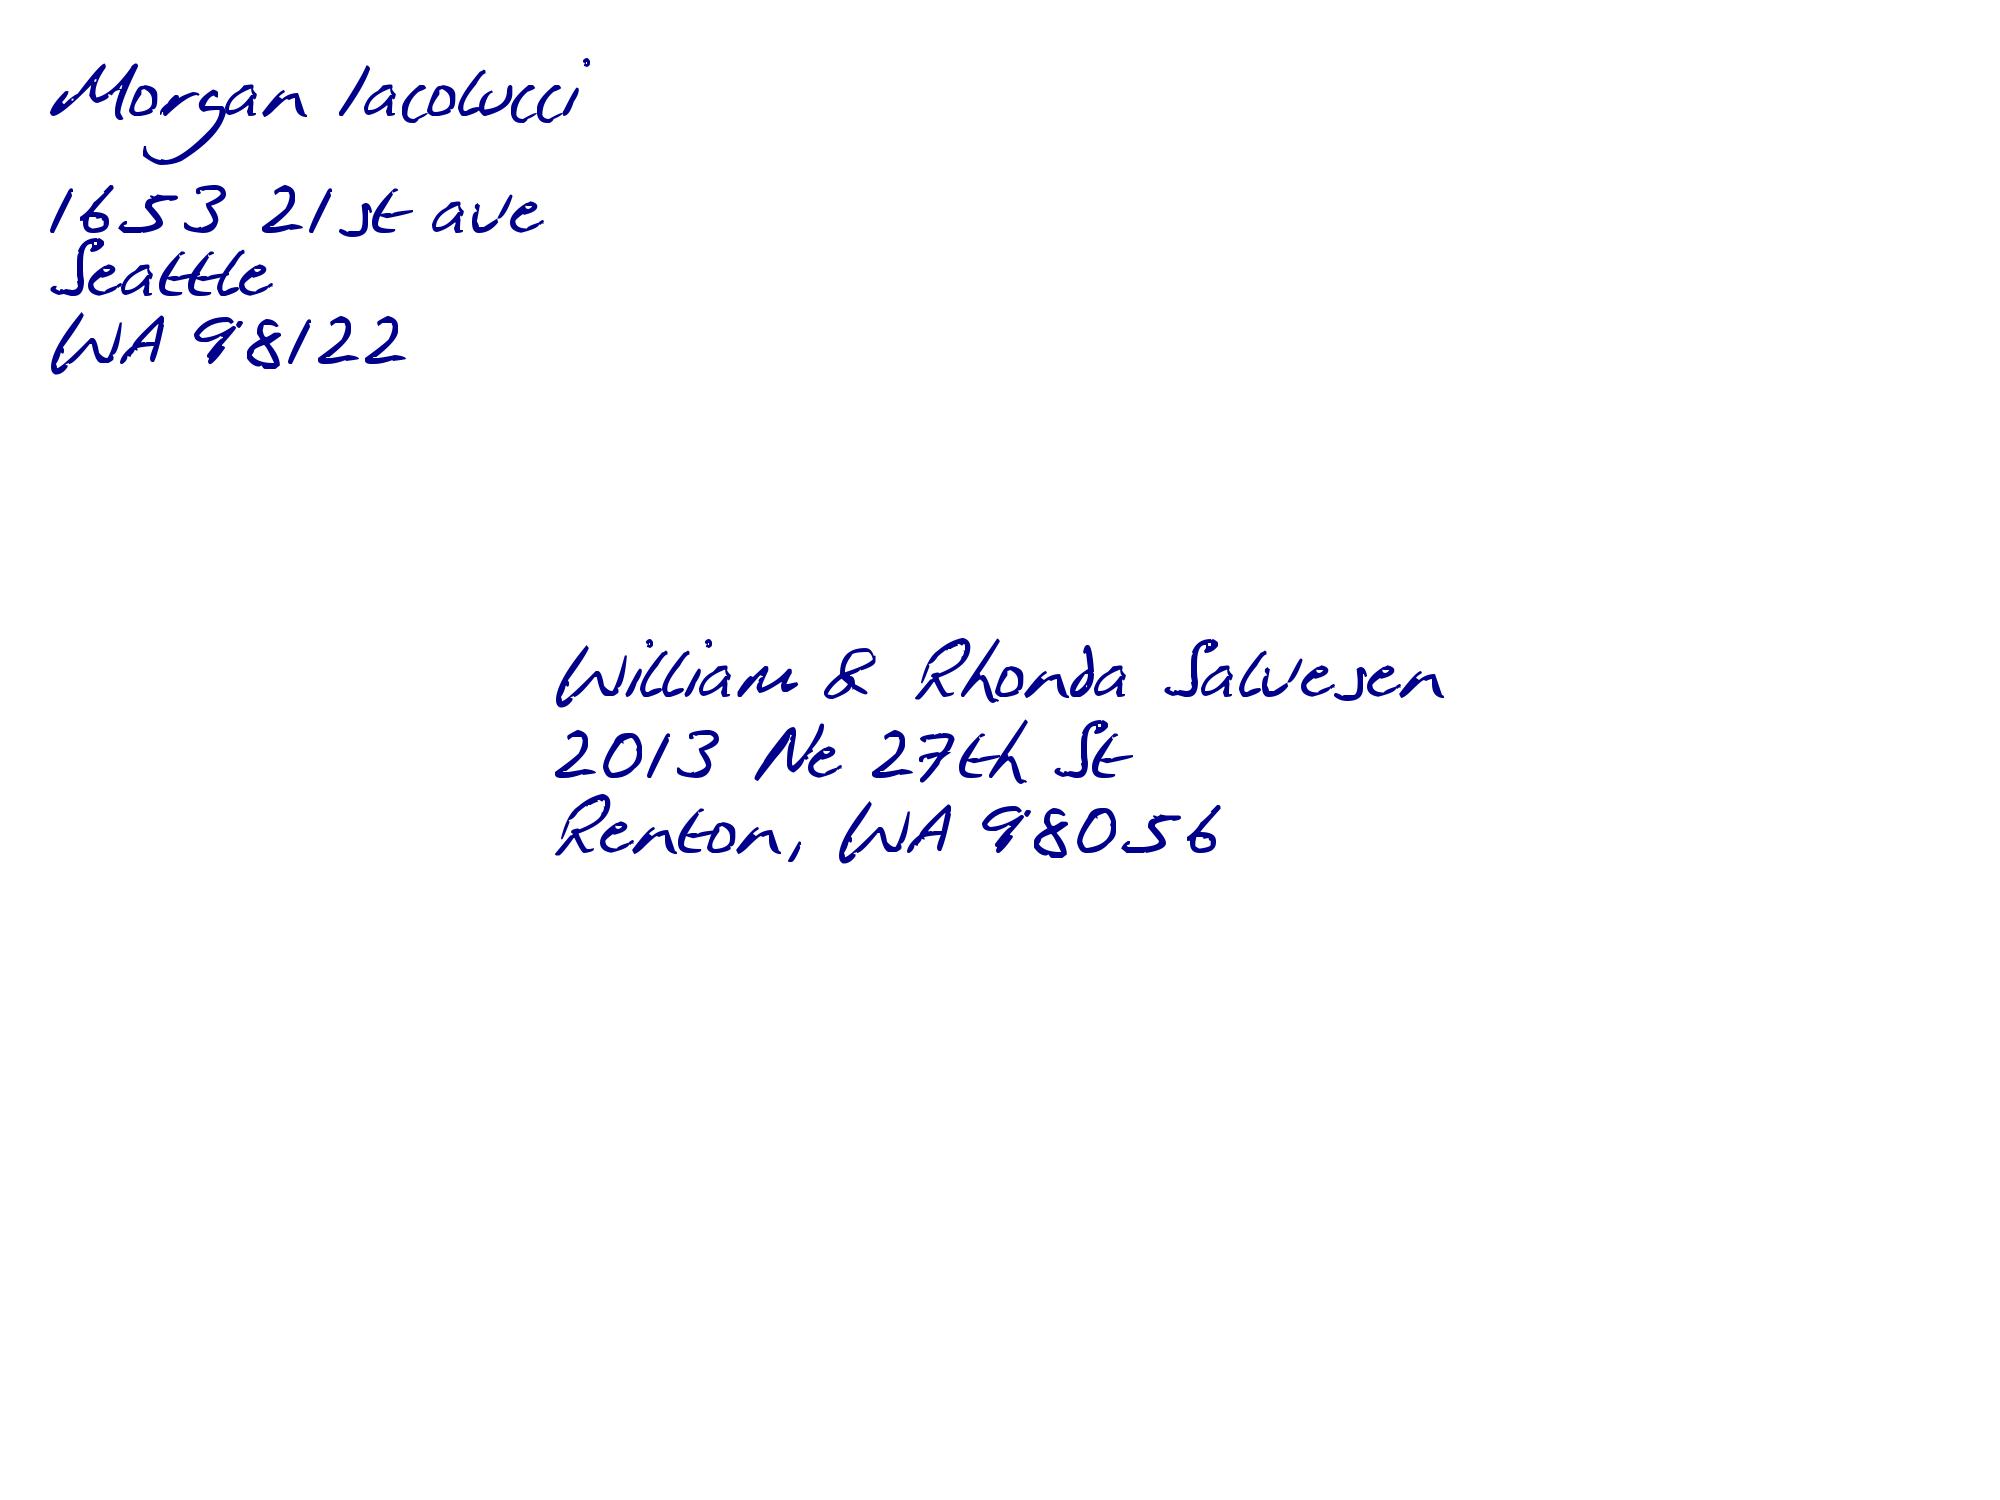 Morgan Iacolucci
1653 21st ave
Seattle
WA 98122
William & Rhonda Salvesen
2013 Ne 27th St
Renton, WA 98056